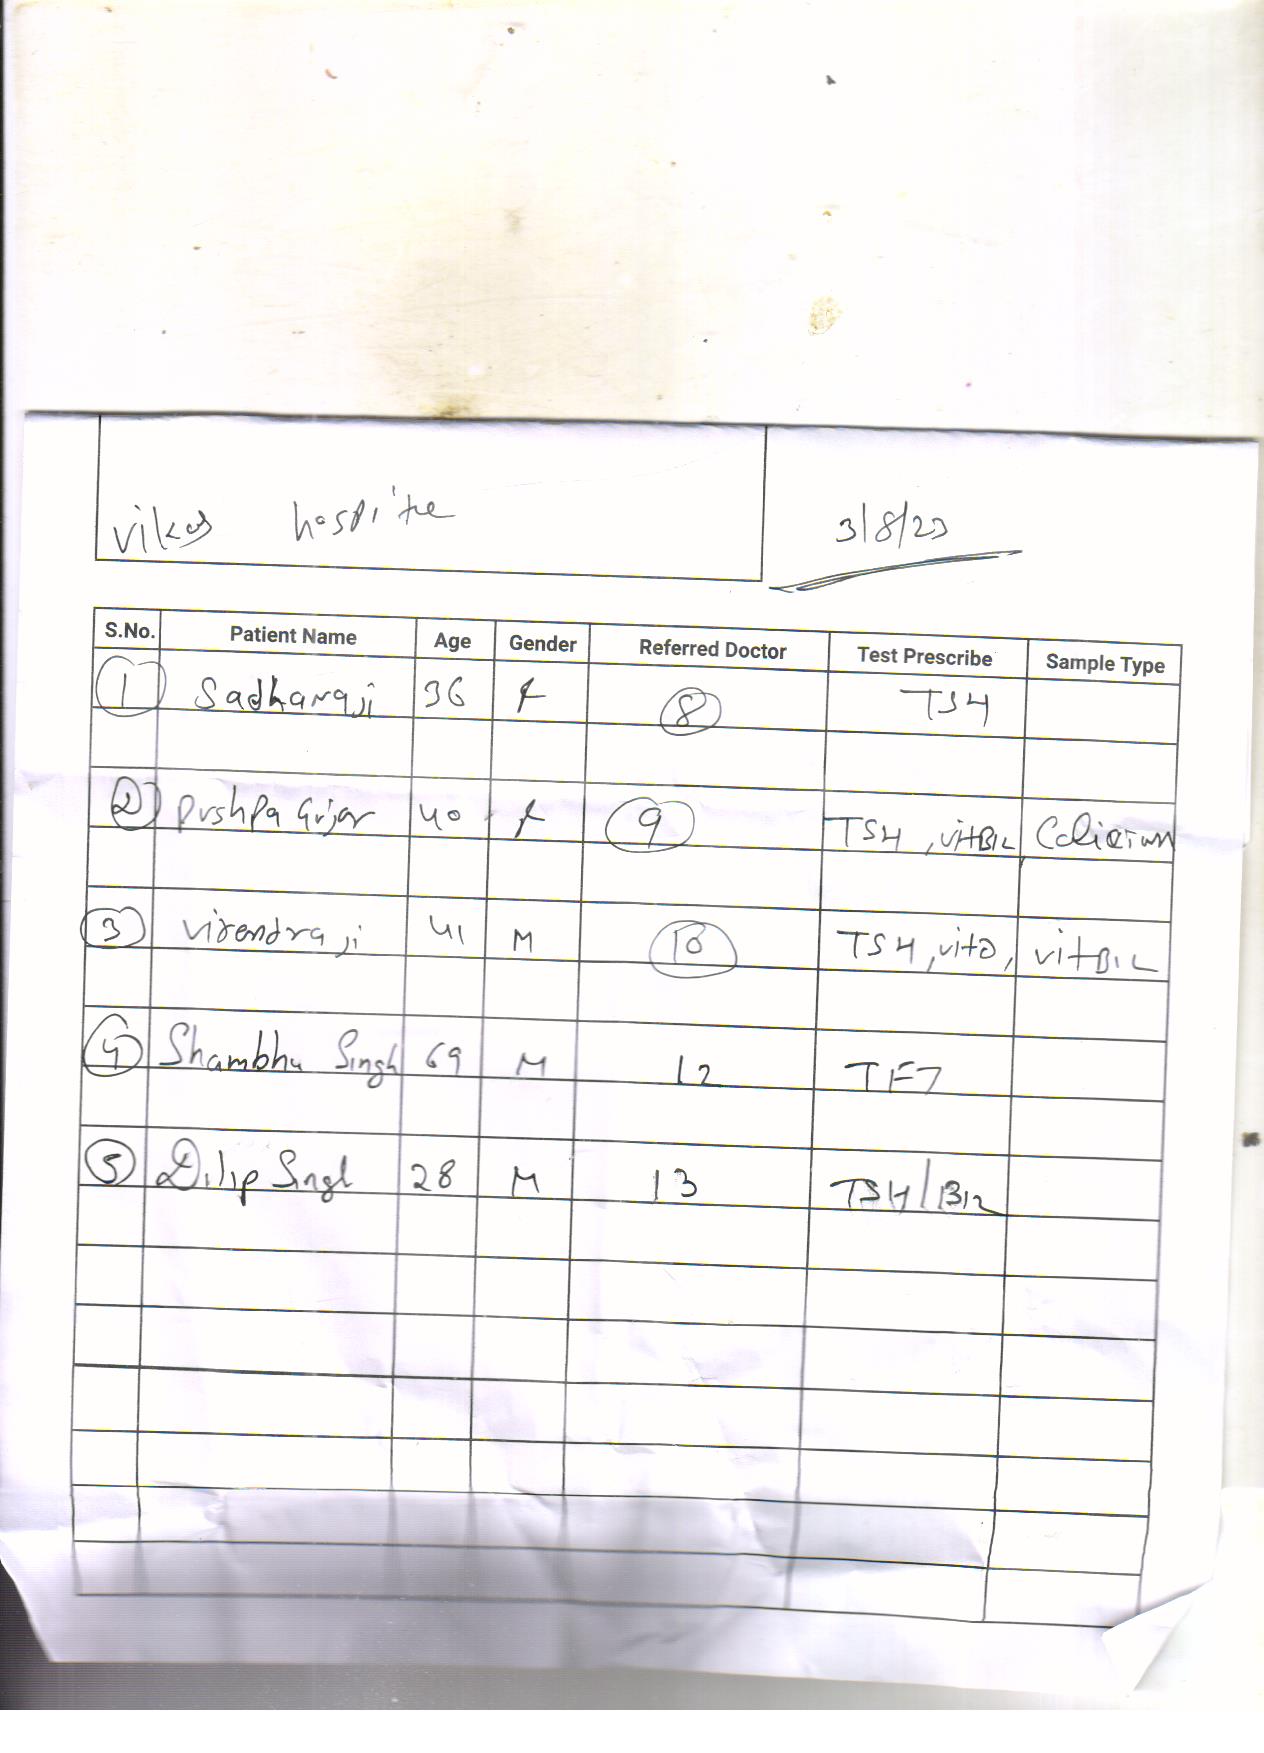 vikas hospitre
3/8/23
S.No. Patient Name Age Gender Referred Doctor Test Prescribe Sample Type
1 Sadhanaji 36 F 8 TSH
2 Pushpa Gujar 40 F 9 TSH, vitB12 Calicium
3 Virendra ji 41 M 10 TSH, vitD, vitB12
4 Shambhu Singh 69 M 12 TFT
5 Dilip Singh 28 M 13 TSH/B12